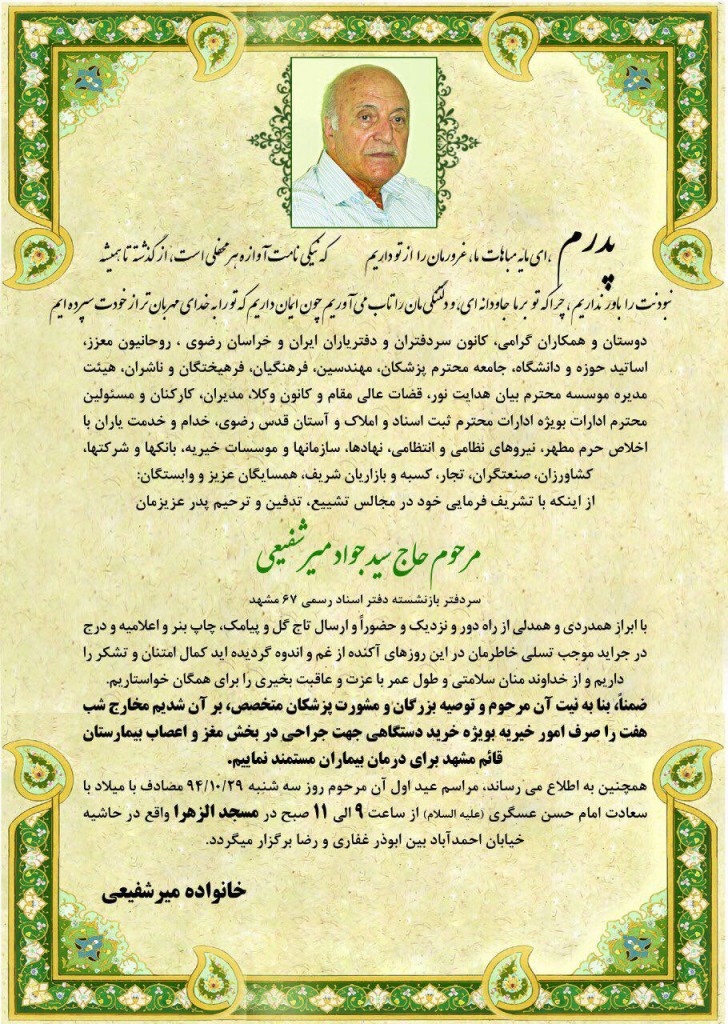 پدرم ، ای مایه مباهات ما، غرورمان را از تو داریم که نیکی نامت آوازه هر محفلی است، از گذشته تا همیشه
نبودنت را باور نداریم ، چرا که تو بر ما جاودانه ای، و دلتنگی مان را تاب می آوریم چون ایمان داریم که تو را به خدای مهربان تر از خودت سپرده ایم
دوستان و همکاران گرامی، کانون سردفتران و دفتریاران ایران و خراسان رضوی ، روحانیون معزز،
اساتید حوزه و دانشگاه، جامعه محترم پزشکان، مهندسین، فرهنگیان، فرهیختگان و ناشران، هیئت
مدیره موسسه محترم بیان هدایت نور، قضات عالی مقام و کانون وکلا، مدیران، کارکنان و مسئولین
محترم ادارات بویژه ادارات محترم ثبت اسناد و املاک و آستان قدس رضوی، خدام و خدمت یاران با
اخلاص حرم مطهر، نیروهای نظامی و انتظامی، نهادها، سازمانها و موسسات خیریه، بانکها و شرکتها،
کشاورزان، صنعتگران، تجار، کسبه و بازاریان شریف، همسایگان عزیز و وابستگان:
از اینکه با تشریف فرمایی خود در مجالس تشییع، تدفین و ترحیم پدر عزیزمان
مرحوم حاج سید جواد میرشفیعی
سردفتر بازنشسته دفتر اسناد رسمی ۶۷ مشهد
با ابراز همدردی و همدلی از راه دور و نزدیک و حضوراً و ارسال تاج گل و پیامک، چاپ بنر و اعلامیه و درج
در جراید موجب تسلی خاطرمان در این روزهای آکنده از غم و اندوه گردیده اید کمال امتنان و تشکر را
داریم و از خداوند منان سلامتی و طول عمر با عزت و عاقبت بخیری را برای همگان خواستاریم.
ضمناً، بنا به نیت آن مرحوم و توصیه بزرگان و مشورت پزشکان متخصص، بر آن شدیم مخارج شب
هفت را صرف امور خیریه بویژه خرید دستگاهی جهت جراحی در بخش مغز و اعصاب بیمارستان
قائم مشهد برای درمان بیماران مستمند نماییم.
همچنین به اطلاع می رساند، مراسم عید اول آن مرحوم روز سه شنبه ۹۴/۱۰/۲۹ مصادف با میلاد با
سعادت امام حسن عسگری (علیه السلام) از ساعت ۹ الی ۱۱ صبح در مسجد الزهرا واقع در حاشیه
خیابان احمدآباد بین ابوذر غفاری و رضا برگزار میگردد.
خانواده میرشفیعی